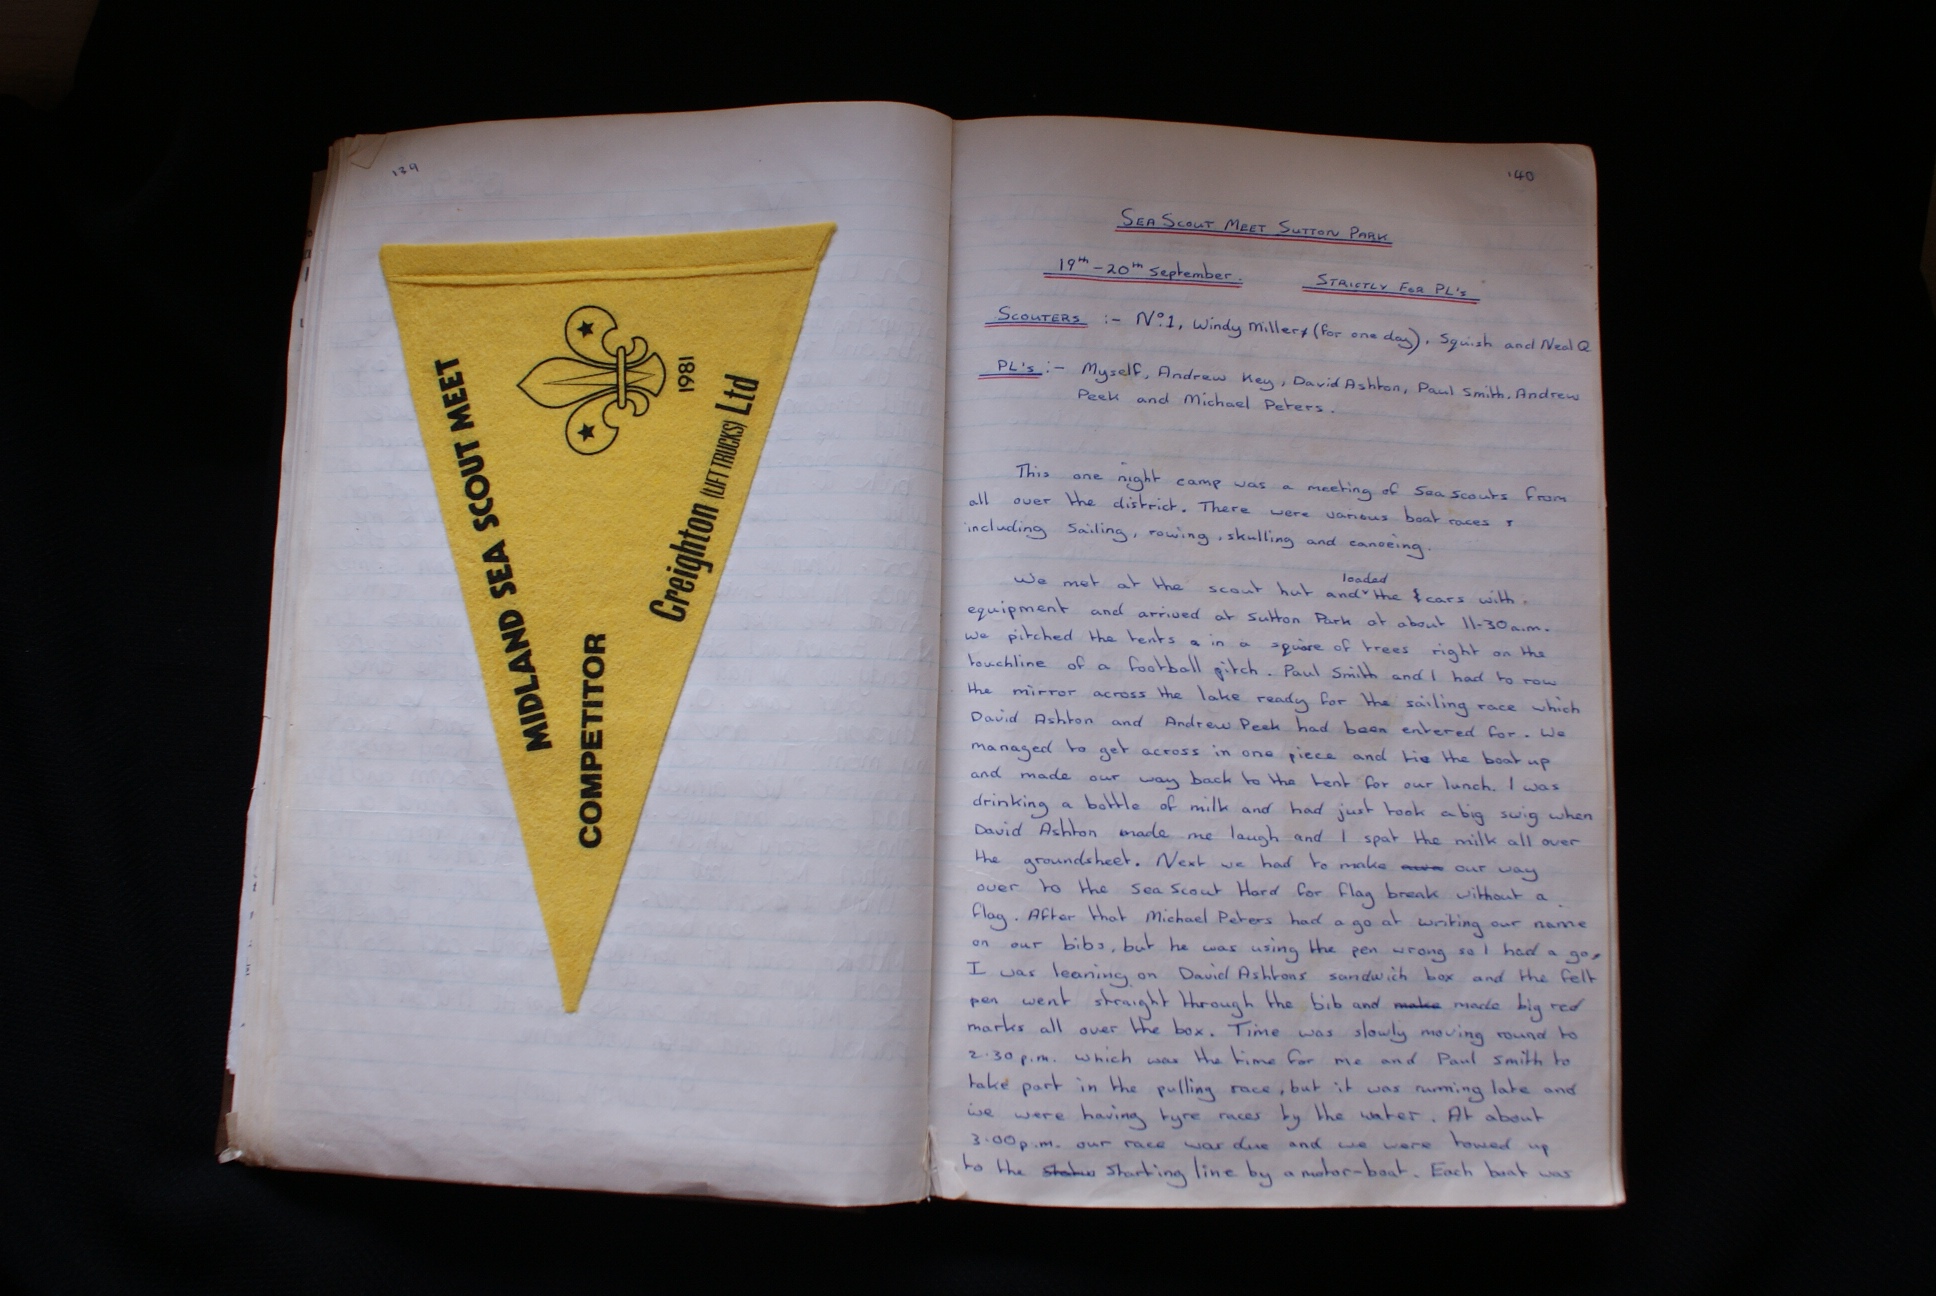 139
MIDLAND SEA SCOUT MEET
COMPETITOR
1981
Creighton (LIFT TRUCKS) Ltd
140
SEA SCOUT MEET SUTTON PARK
19th - 20th September. STRICTLY FOR PL's
SCOUTERS :- No.1, Windy Miller (for one day), Squish and Neal Q
PL's :- Myself, Andrew Key, David Ashton, Paul Smith, Andrew
Peek and Michael Peters.
This one night camp was a meeting of Sea Scouts from
all over the district. There were various boat races
including Sailing, rowing, skulling and canoeing.
We met at the scout hut and loaded the cars with
equipment and arrived at Sutton Park at about 11-30a.m.
We pitched the tents in a square of trees right on the
touchline of a football pitch. Paul Smith and I had to row
the mirror across the lake ready for the sailing race which
David Ashton and Andrew Peek had been entered for. We
managed to get across in one piece and tie the boat up
and made our way back to the tent for our lunch. I was
drinking a bottle of milk and had just took a big swig when
David Ashton made me laugh and I spat the milk all over
the groundsheet. Next we had to make our way
over to the Sea Scout Hard for flag break without a
flag. After that Michael Peters had a go at writing our name
on our bibs, but he was using the pen wrong so I had a go,
I was leaning on David Ashtons sandwich box and the felt
pen went straight through the bib and make made big red
marks all over the box. Time was slowly moving round to
2.30p.m. which was the time for me and Paul Smith to
take part in the pulling race, but it was running late and
we were having tyre races by the water. At about
3.00p.m. our race was due and we were towed up
to the starting line by a motor-boat. Each boat was